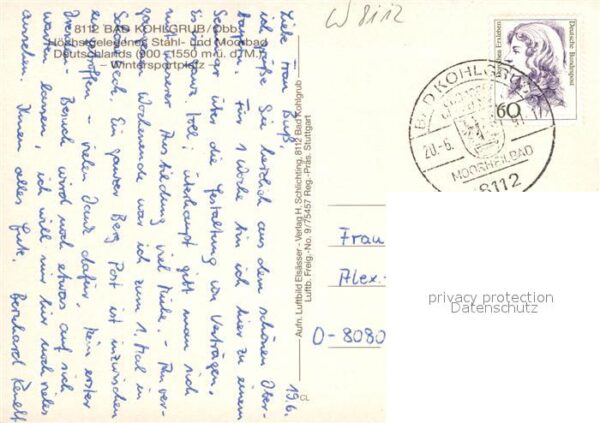 W 8112
8112 BAD KOHLGRUB/Obb.
Höchstgelegenes Stahl- und Moorbad
Deutschlands (900 - 1550 m ü. d. M.)
- Wintersportplatz -
19.6.
Liebe Frau Buß!
ich grüße Sie herzlich aus dem schönen Ober-
bayern. Für 1 Woche bin ich hier zu einem
Seminar über die Gestaltung von Verträgen.
Es ist ganz toll; überhaupt gibt man sich
mit unserer Ausbildung viel Mühe. - Am ver-
gangenen Wochenende war ich zum 1. Mal in
Ein ganzer Berg Post ist inzwischen
eingetroffen - vielen Dank dafür. Mein erster
Besuch wird noch etwas auf sich
warten lassen, ich will mir hier noch vieles
ansehen. Ihnen alles Gute. Bernhard
Aufn. Luftbild Elsässer - Verlag H. Schlichting, 8112 Bad Kohlgrub
Luftb. Freig.-No. 9/75457 Reg.-Präs. Stuttgart
CL
Deutsche Bundespost
Dorothea Erxleben
60
BAD KOHLGRUB
20.-6.
91
MOORHEILBAD
8112
Frau
Alex.-
D-8080
privacy protection
Datenschutz